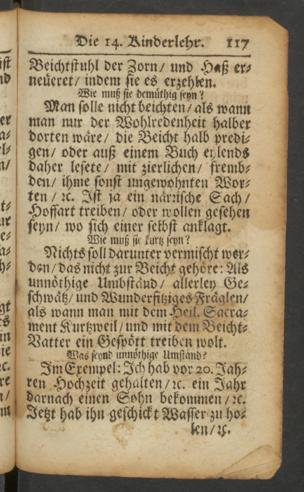 Die 14. Kinderlehr. 117
Beichtstuhl der Zorn / und Haß er-
neüeret / indem sie es erzehlen.
Wie muß sie demüthig seyn?
Man solle nicht beichten / als wann
man nur der Wohlredenheit halber
dorten wäre / die Beicht halb predi-
gen / oder auß einem Buch eylends
daher lesete / mit zierlichen / fremb-
den / ihme sonst ungewohnten Wor-
ten / ꝛc. Ist ja ein närrische Sach /
Hoffart treiben / oder wollen gesehen
seyn / wo sich einer selbst anklagt.
Wie muß sie kurtz seyn?
Nichts soll darunter vermischt wer-
den / das nicht zur Beicht gehöre: Als
unnöthige Umbständ / allerley Ge-
schwätz / und Wunderfitziges Fräglen /
als wann man mit dem Heil. Sacra-
ment Kurtzweil / und mit dem Beicht-
Vatter ein Gespött treiben wolt.
Was seynd unnöthige Umständ?
Im Exempel: Ich hab vor 20. Jah-
ren Hochzeit gehalten / ꝛc. ein Jahr
darnach einen Sohn bekommen / ꝛc.
Jetzt hab ihn geschickt Wasser zu ho-
len / ꝛc.